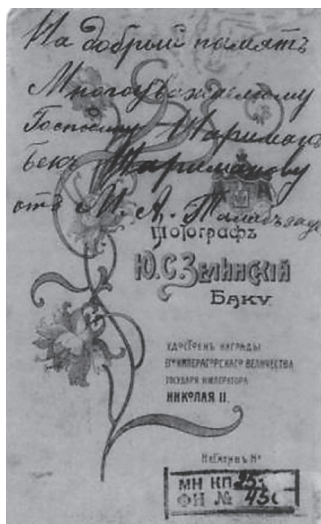 На добрый память
Многоуважаемому
Господину Нариманъ
бекъ Нариманову
отъ М. А. Талабъзаде
Фотографъ
Ю.С.Зелинскій
Баку.
УДОСТОЕНЪ НАГРАДЫ
ЕГО ИМПЕРАТОРСКАГО ВЕЛИЧЕСТВА
ГОСУДАРЯ ИМПЕРАТОРА
НИКОЛАЯ II.
Негативъ №
МН КП
ФН №